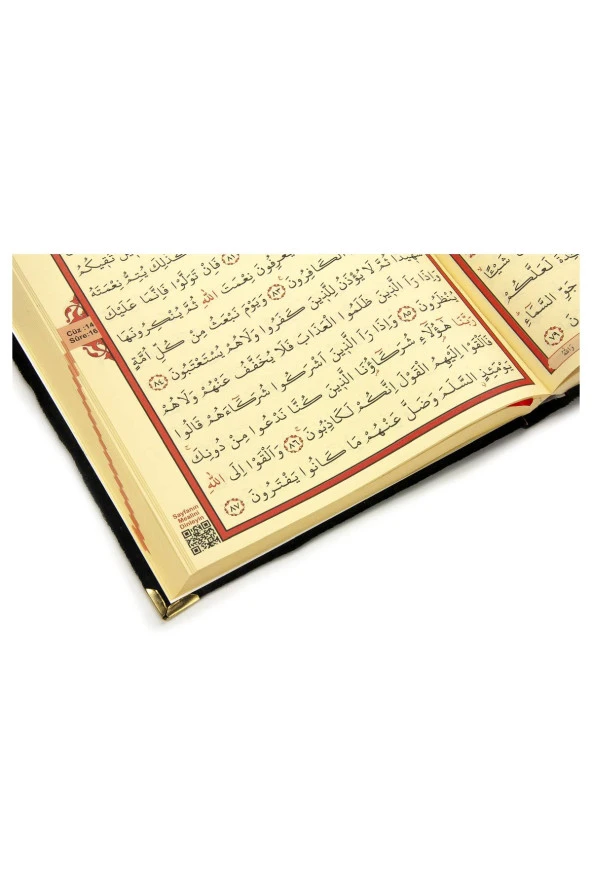 شَيْـًٔا
لَعَلَّكُمْ
جَوِّ السَّمَٓاءِ
﴿٧٩﴾
تَقِيكُمْ
كَذٰلِكَ يُتِمُّ نِعْمَتَهُ
﴿٨١﴾ فَاِنْ تَوَلَّوْا فَاِنَّمَا عَلَيْكَ
يَعْرِفُونَ نِعْمَتَ اللّٰهِ ثُمَّ يُنْكِرُونَهَا
الْكَافِرُونَ ﴿٨٣﴾ وَيَوْمَ نَبْعَثُ مِنْ كُلِّ اُمَّةٍ
شَهِيدًا ثُمَّ لَا يُؤْذَنُ لِلَّذِينَ كَفَرُوا وَلَاهُمْ يُسْتَعْتَبُونَ ﴿٨٤﴾
وَاِذَا رَاَ الَّذِينَ ظَلَمُوا الْعَذَابَ فَلَا يُخَفَّفُ عَنْهُمْ وَلَاهُمْ
يُنْظَرُونَ ﴿٨٥﴾ وَاِذَا رَاَ الَّذِينَ اَشْرَكُوا شُرَكَٓاءَهُمْ قَالُوا
رَبَّنَا هٰٓؤُ۬لَٓاءِ شُرَكَٓاؤُ۬نَا الَّذِينَ كُنَّا نَدْعُوا مِنْ دُونِكَ
فَاَلْقَوْا اِلَيْهِمُ الْقَوْلَ اِنَّكُمْ لَكَاذِبُونَ ﴿٨٦﴾ وَاَلْقَوْا اِلَى اللّٰهِ
يَوْمَئِذٍ السَّلَمَ وَضَلَّ عَنْهُمْ مَا كَانُوا يَفْتَرُونَ ﴿٨٧﴾
Cüz :14
Sûre:16
Sayfanın
Mealini
Dinleyin